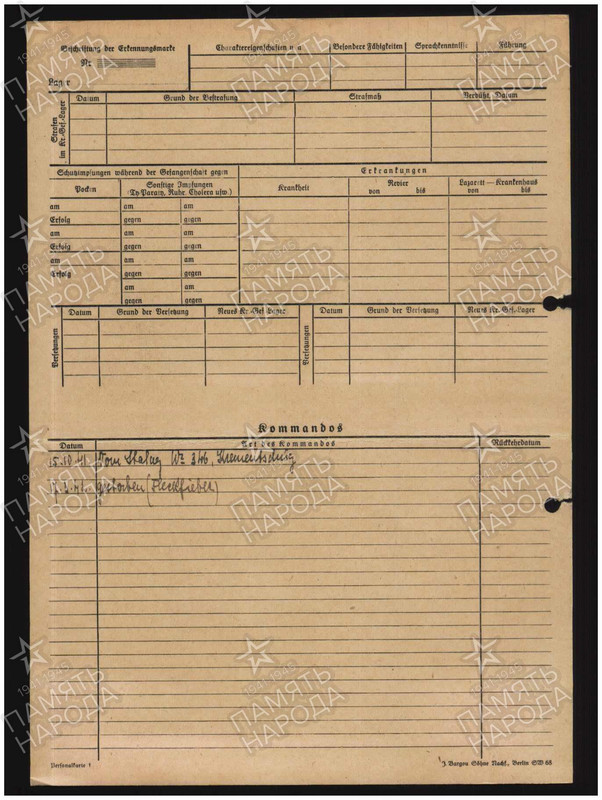 Beschriftung der Erkennungsmarke
Nr.
Lager
Charaktereigenschaften u. a.
Besondere Fähigkeiten
Sprachkenntnisse
Führung
Strafen im Kr.-Gef.-Lager
Datum
Grund der Bestrafung
Strafmaß
Verbüßt, Datum
Schutzimpfungen während der Gefangenschaft gegen
Erkrankungen
Pocken
Sonstige Impfungen
(Ty. Paraty, Ruhr, Cholera usw.)
Krankheit
Revier
von bis
Lazarett — Krankenhaus
von bis
am am am
Erfolg gegen gegen
am am am
Erfolg gegen gegen
am am am
Erfolg gegen gegen
am am
gegen gegen
Versetzungen
Datum
Grund der Versetzung
Neues Kr.-Gef.-Lager
Versetzungen
Datum
Grund der Versetzung
Neues Kr.-Gef.-Lager
Kommandos
Datum
Art des Kommandos
Rückkehrdatum
15.10.41. Vom Stalag Nr 346, Krementschug
gestorben (Fleckfieber)
Personalkarte 1
J. Bargou Söhne Nachf., Berlin SW 68
1941-1945
ПАМЯТЬ
НАРОДА